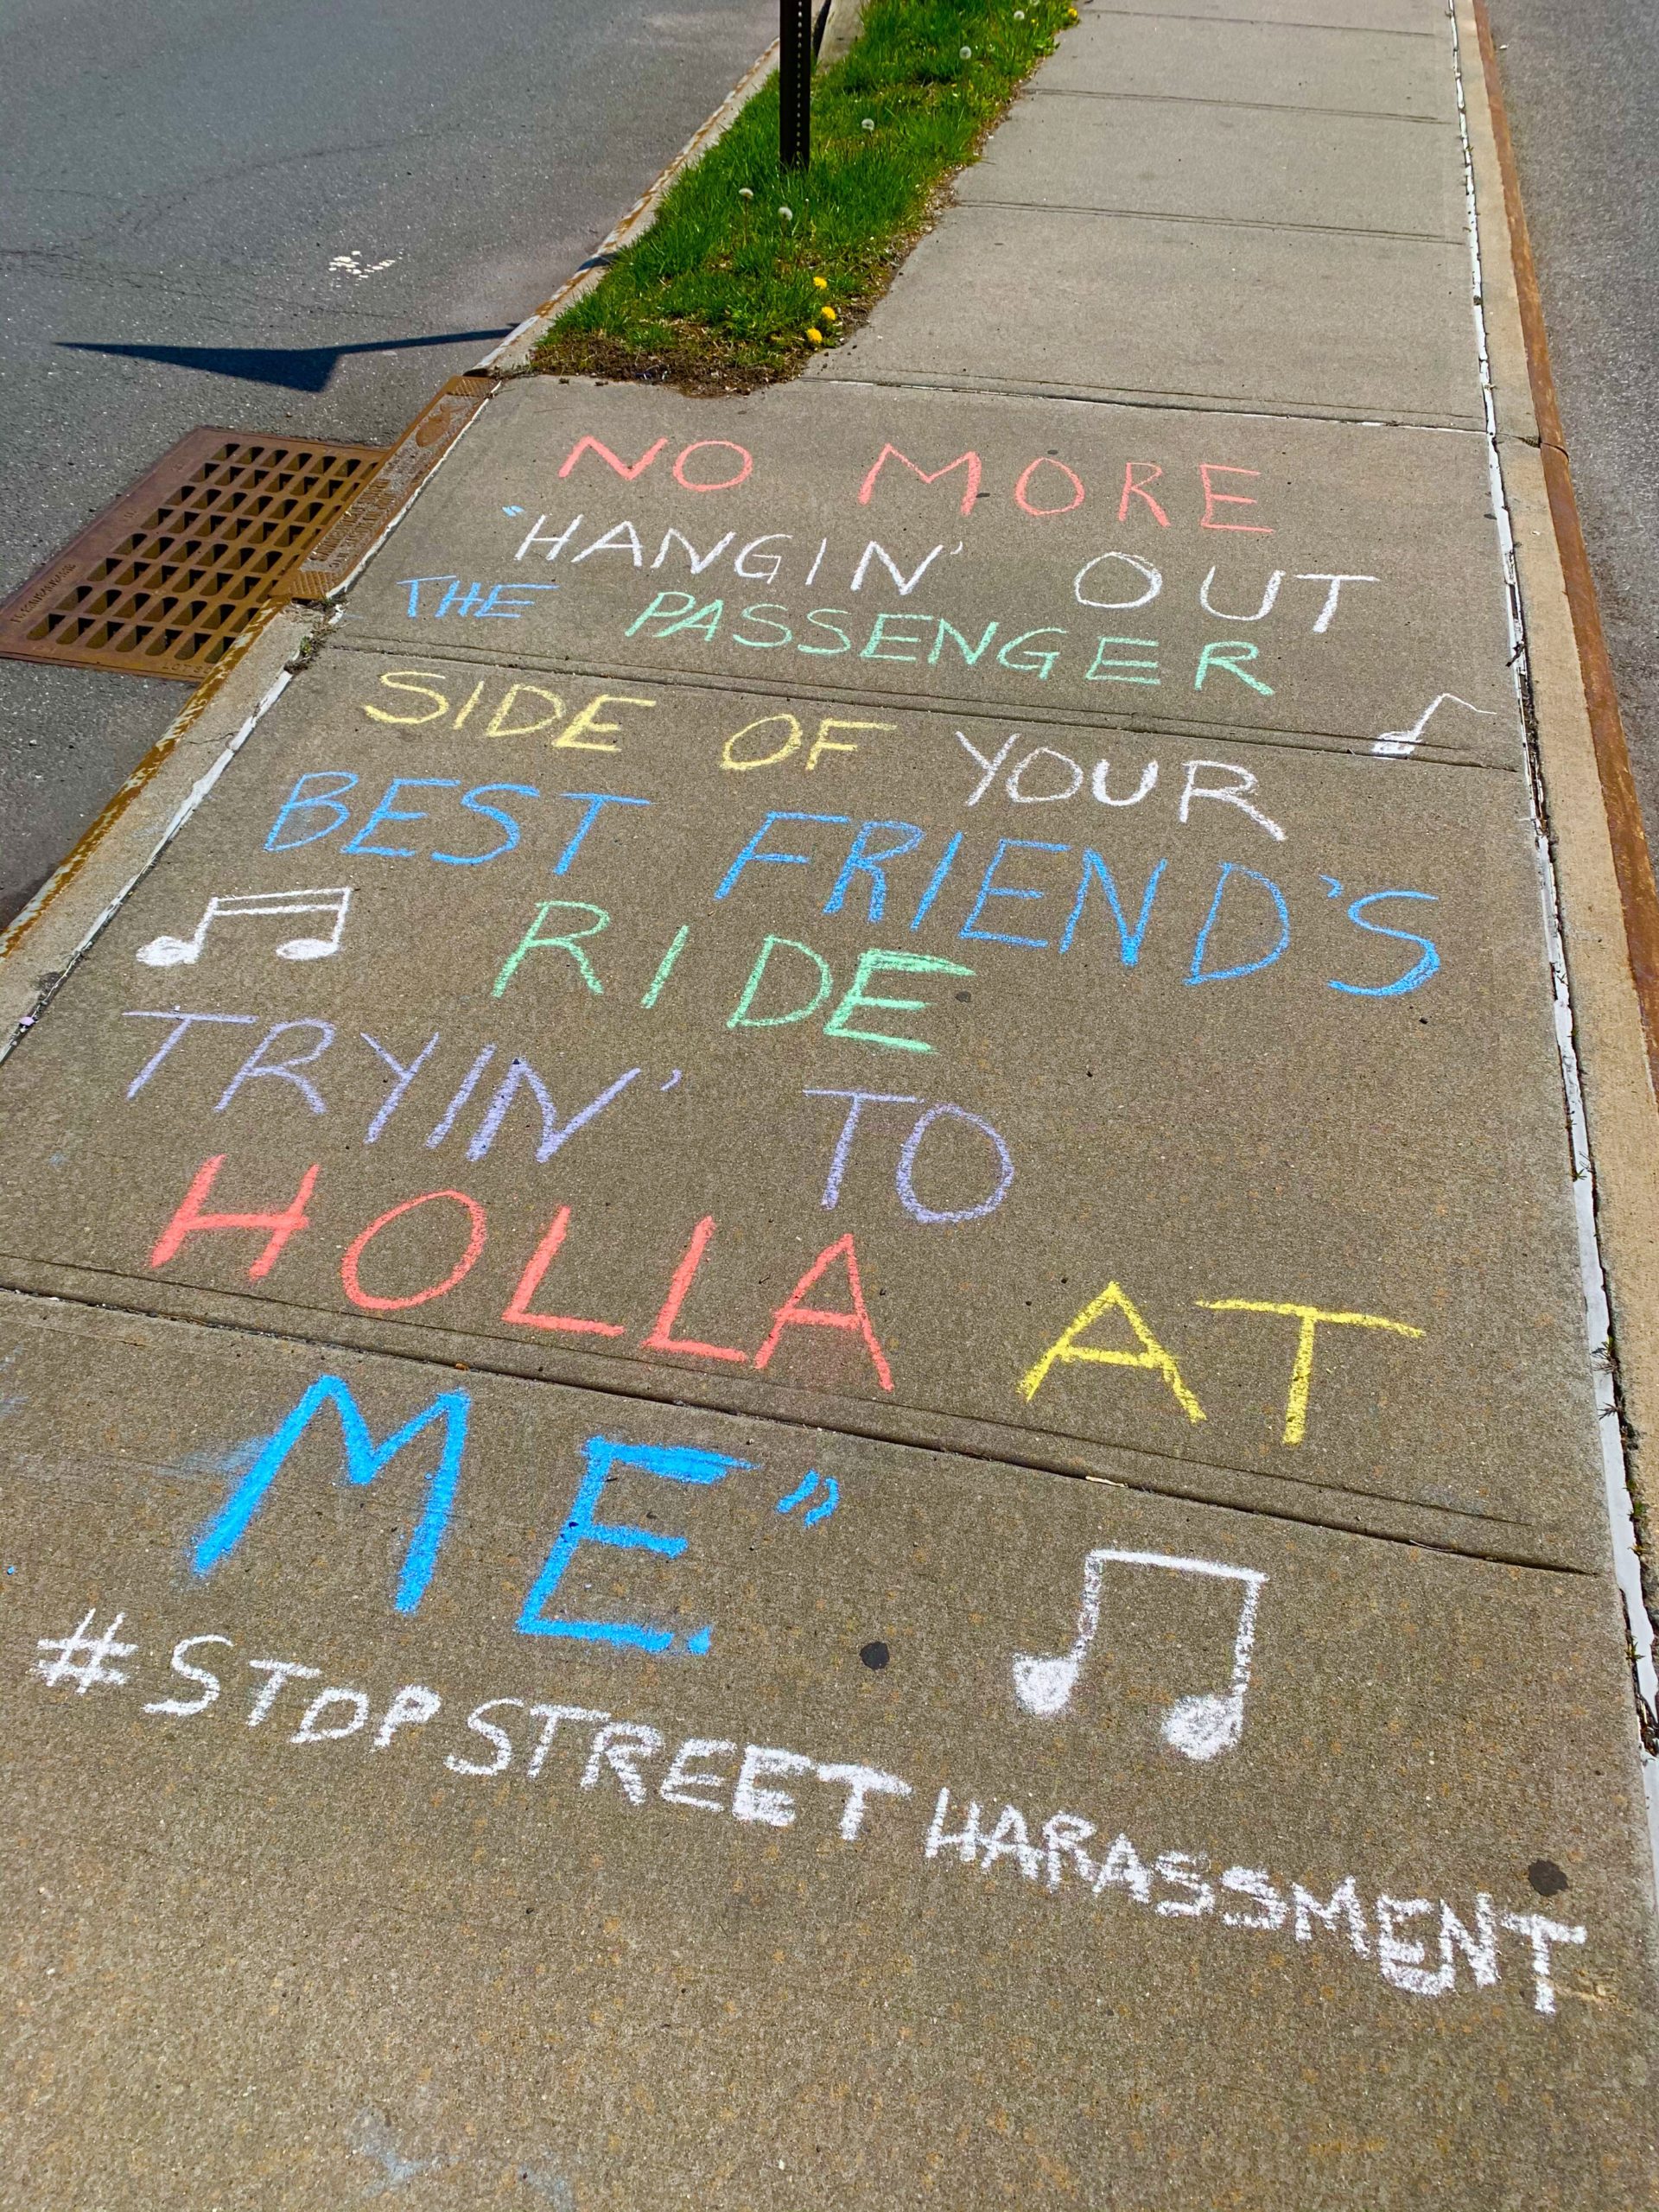 NO MORE
"HANGIN' OUT
THE PASSENGER
SIDE OF YOUR
BEST FRIEND'S
RIDE
TRYIN' TO
HOLLA AT
ME"
#STOPSTREETHARASSMENT